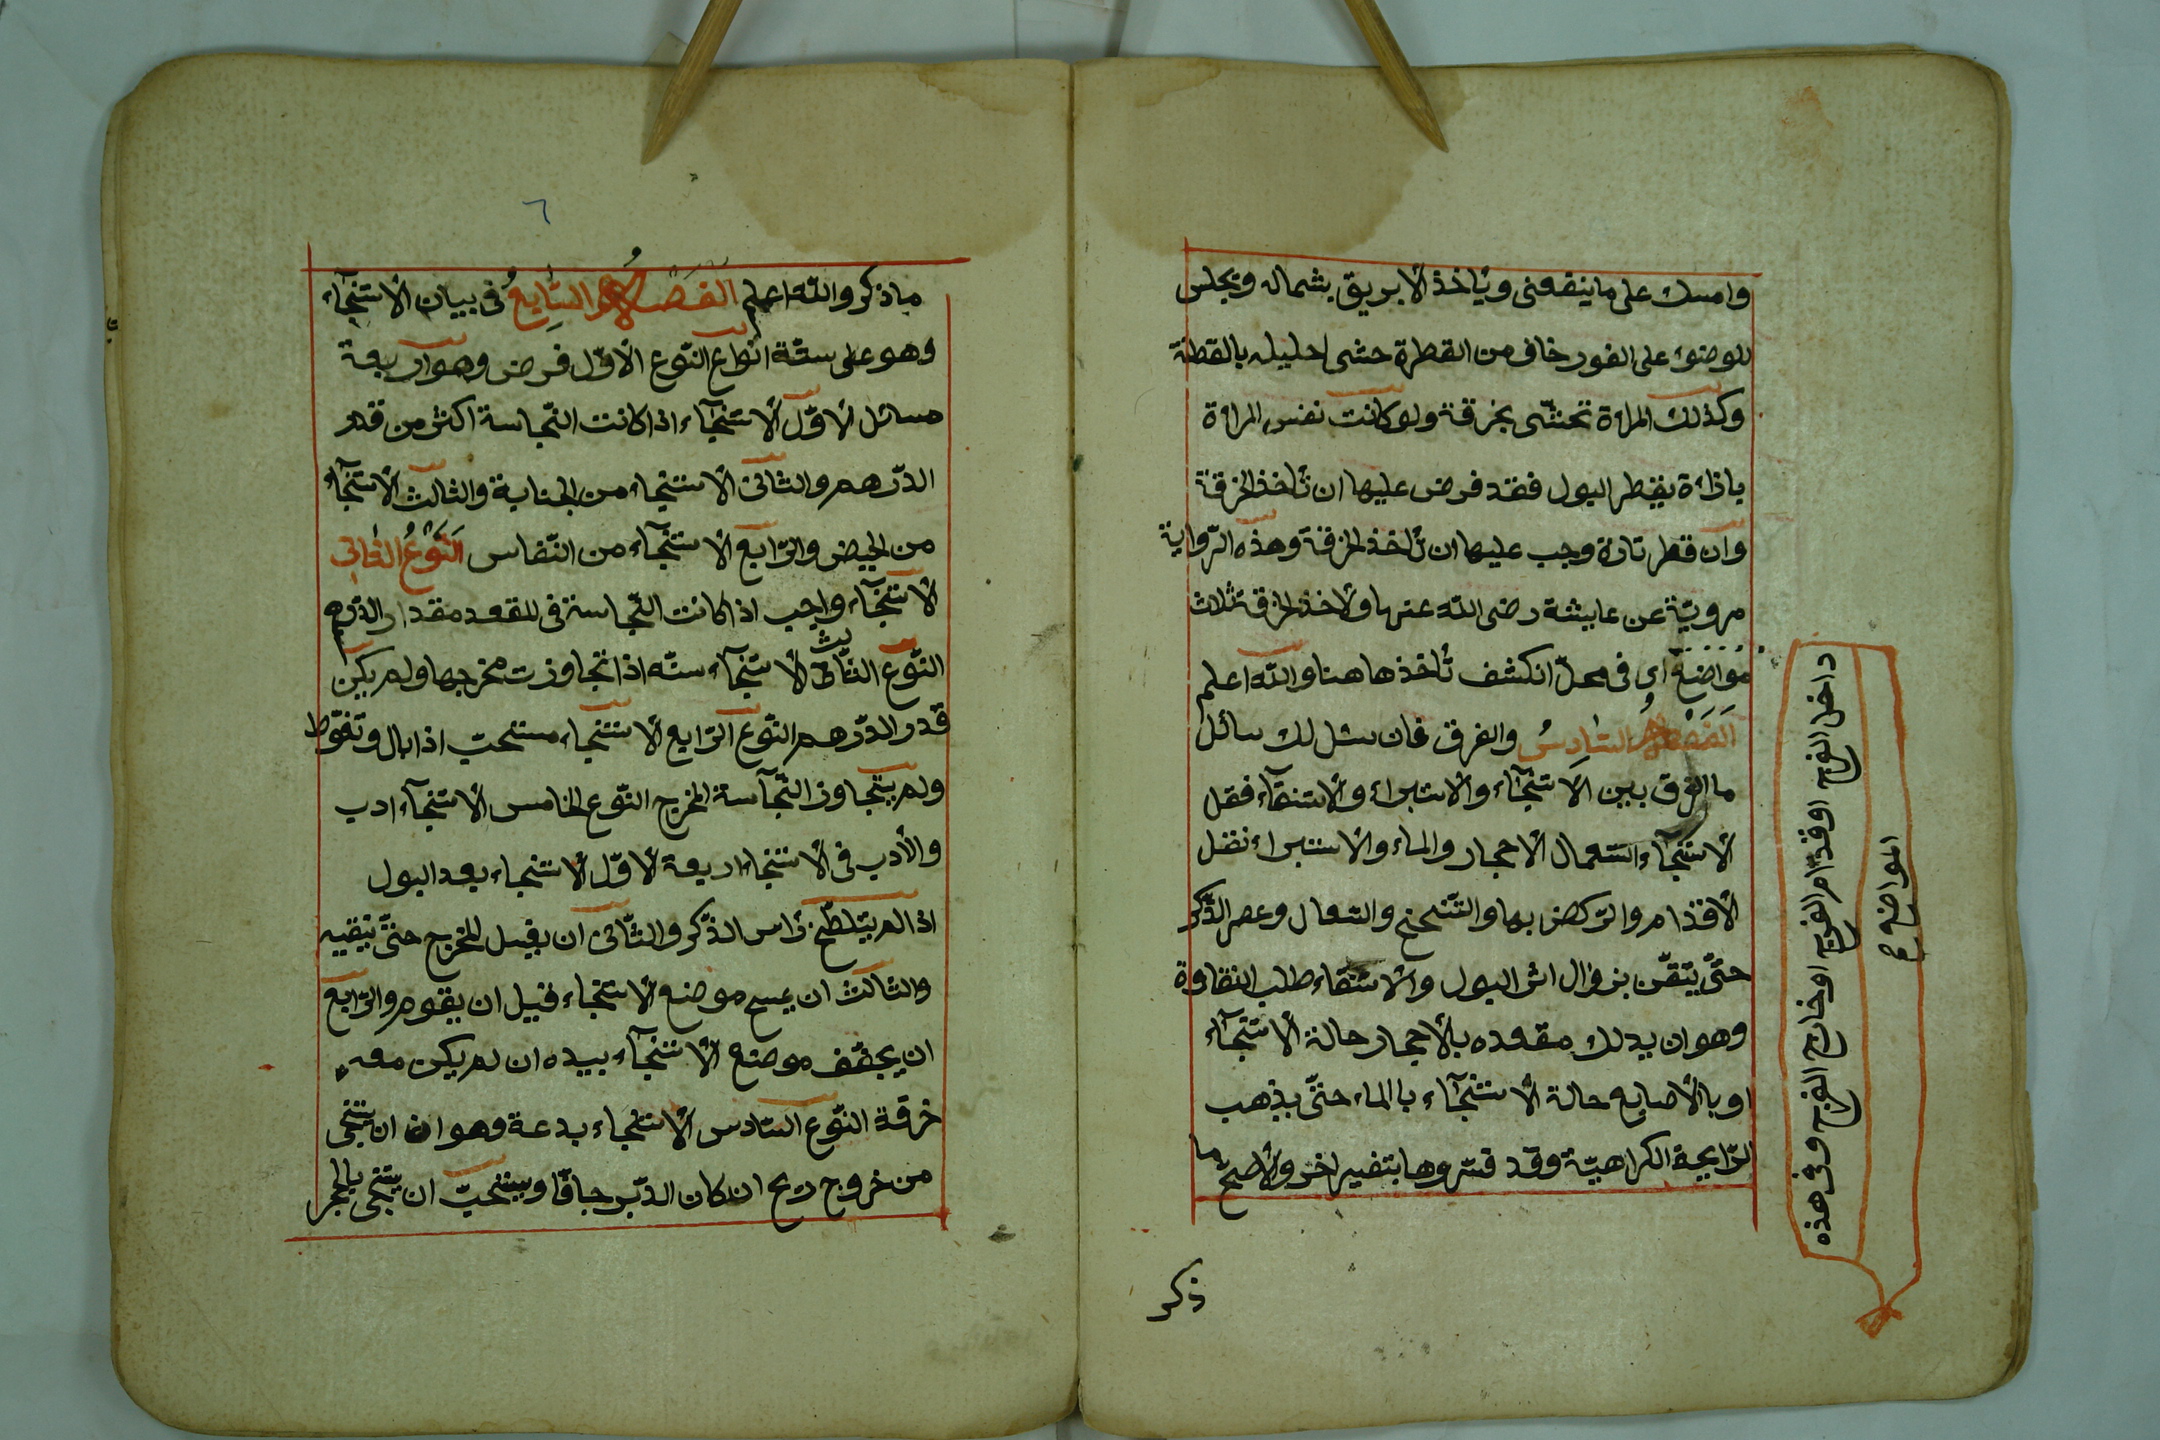 وامسك على ما ينقعنى ويأخذ الابريق بشماله ويجلس
للوضوء على الفور خاف من القطرة حشى احليله بالقطنة
وكذلك المراة تحتشى بخرقة ولو كانت نفس المراة
باذاءة يقطر البول فقد فرض عليها ان تأخذ الخرقة
وان قطر تارة وجب عليها ان تأخذ الخرقة وهذه الرواية
مروية عن عايشة رضى الله عنها ولاخذ الخرقة ثلاث
مواضع اى فى محل انكشف تأخذها هنا والله اعلم
الفصل السادس والفرق فان سئل لك سائل
ما الفرق بين الاستنجآء والاستبراء والاستنقآء فقل
الاستنجآء استعمال الاحجار والماء والاستبراء نقل
الاقدام والركض بها والتنحنح والسعال وعصر الذكر
حتى يتقن بزوال اثر البول والاستنقاء طلب النقاوة
وهو ان يدلك مقعده بالأحجار حالة الاستنجآء
او بالأصابع حالة الاستنجآء بالماء حتى يذهب
الرايحة الكراهية وقد فسروها بتفسير اخر والاصح ما
ذكر
داخل الفرج او قدام الفرج او خارج الفرج وفى هذه
المواضع صح
٦
ما ذكر والله اعلم الفصل السابع فى بيان الاستنجآء
وهو على ستة انواع النوع الاول فرض وهو اربعة
مسائل الاول الاستنجآء اذا كانت النجاسة اكثر من قدر
الدرهم والثانى الاستنجاء من الجنابة والثالث الاستنجآء
من الحيض والرابع الاستنجآء من النفاس النوع الثانى
الاستنجآء واجب اذا كانت النجاسة فى المقعد مقدار الدرهم
النوع الثالث الاستنجآء سنه اذا تجاوزت مخرجها ولم يكن
قدر الدرهم النوع الرابع الاستنجاء مستحب اذا بال وتغوط
ولم يتجاوز النجآسة المخرج النوع الخامس الاستنجآء ادب
والأدب فى الاستنجاء اربعة الاول الاستنجاء بعد البول
اذا لم يتلطخ رأس الذكر والثانى ان يغسل المخرج حتى ينقيه
والثالث ان يمسح موضع الاستنجاء قبل ان يقوم والرابع
ان يجفف موضع الاستنجآء بيده ان لم يكن معه
خرقة النوع السادس الاستنجاء بدعة وهو ان يستنجى
من خروج ريح ان كان الدبر جافا ويستحب ان يستنجى بالحجر